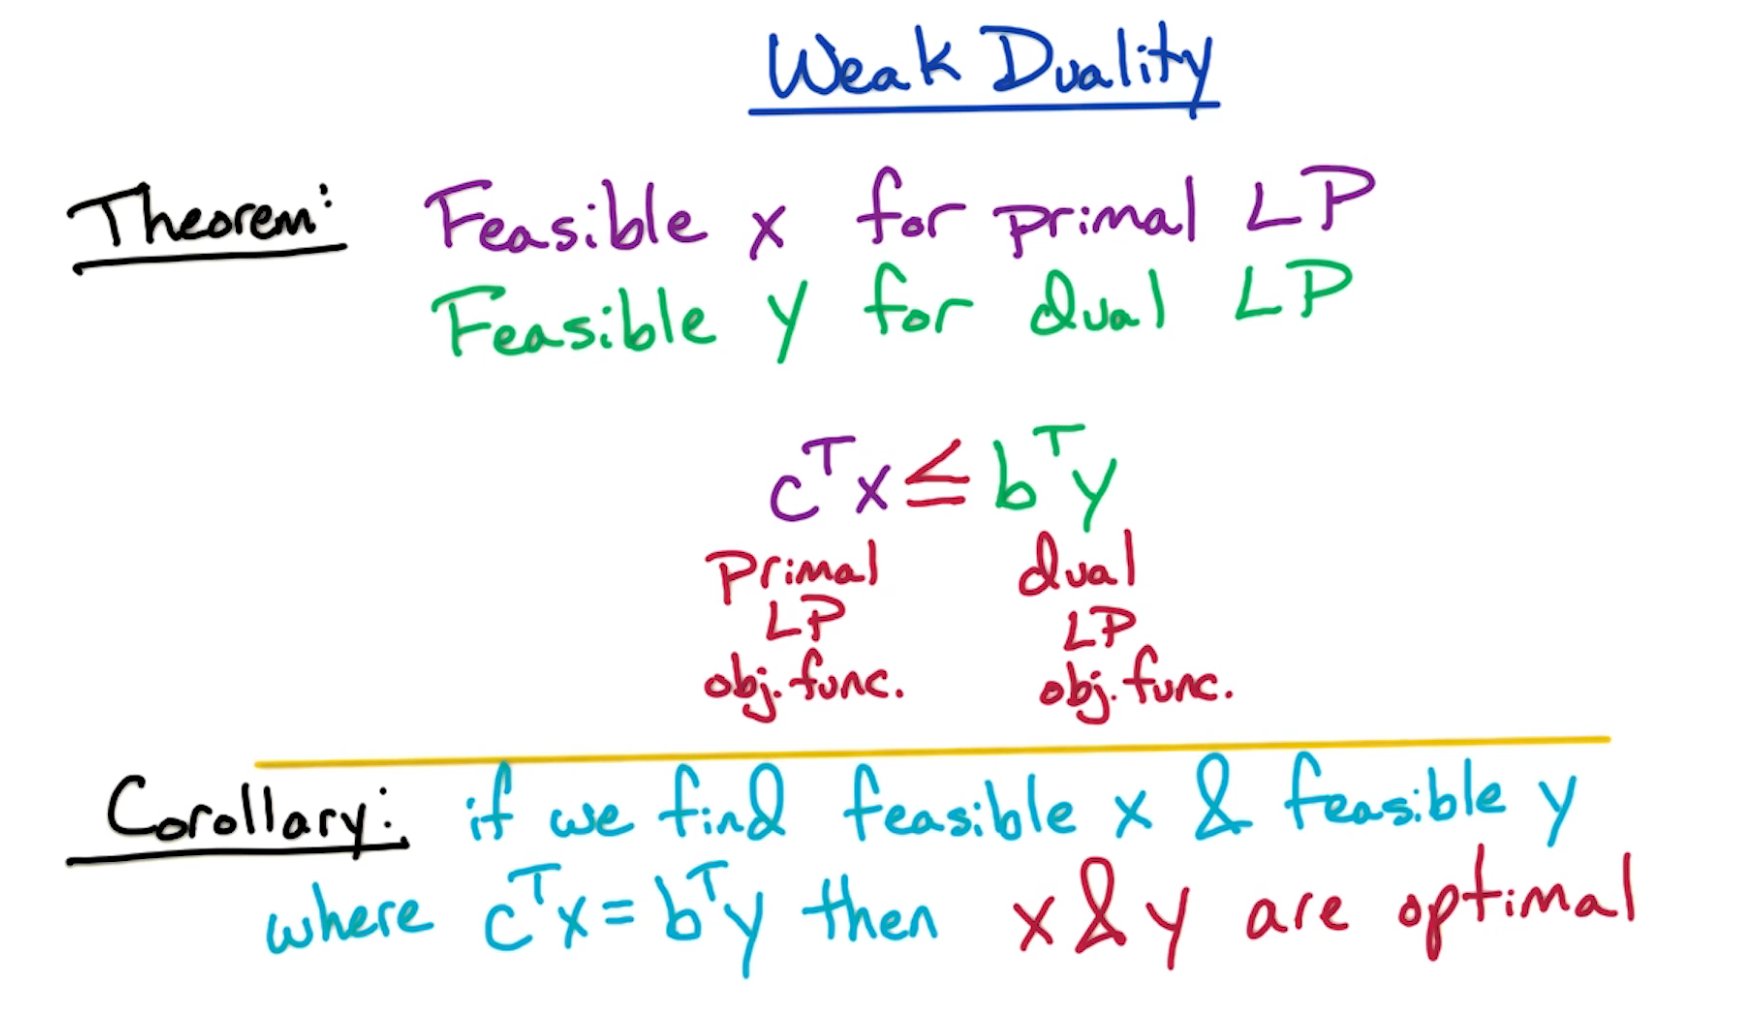 Weak Duality
Theorem: Feasible x for primal LP
Feasible y for dual LP
cᵀx ≤ bᵀy
Primal dual
LP LP
obj. func. obj. func.
Corollary: if we find feasible x & feasible y
where cᵀx = bᵀy then x & y are optimal